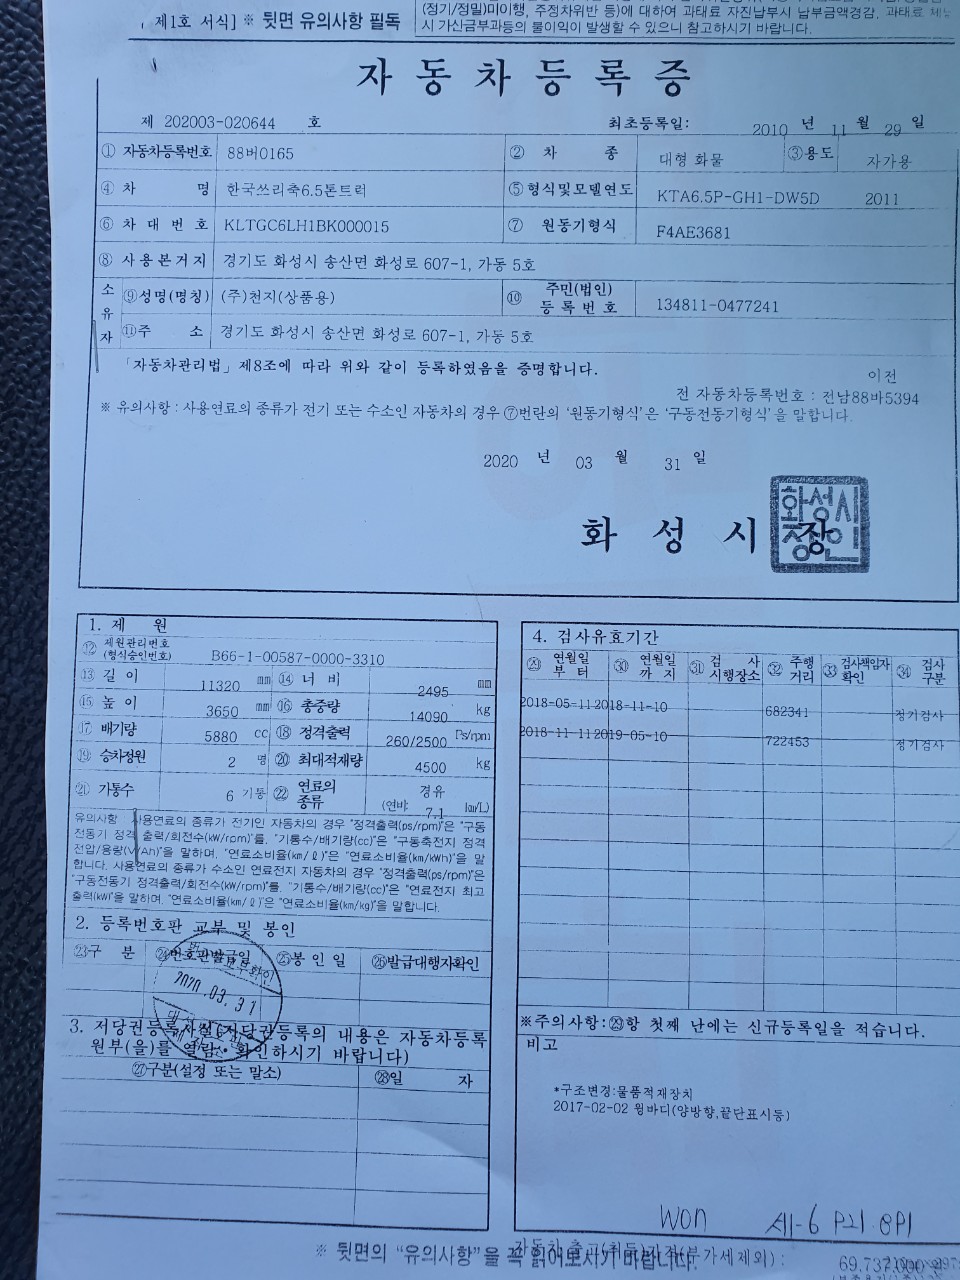 제1호 서식] ※ 뒷면 유의사항 필독
(정기/정밀)미이행, 주정차위반 등)에 대하여 과태료 자진납부시 납부금액경감, 과태료
시 가산금부과등의 불이익이 발생할 수 있으니 참고하시기 바랍니다.
자동차등록증
제 202003-020644 호
최초등록일: 2010 년 11 월 29 일
① 자동차등록번호 88버0165 ② 차 종 대형 화물 ③용도 자가용
④ 차 명 한국쓰리축6.5톤트럭 ⑤ 형식및모델연도 KTA6.5P-GH1-DW5D 2011
⑥ 차대번호 KLTGC6LH1BK000015 ⑦ 원동기형식 F4AE3681
⑧ 사용본거지 경기도 화성시 송산면 화성로 607-1, 가동 5호
소유자 ⑨성명(명칭) (주)천지(상품용) ⑩ 주민(법인)등록번호 134811-0477241
⑪주 소 경기도 화성시 송산면 화성로 607-1, 가동 5호
「자동차관리법」 제8조에 따라 위와 같이 등록하였음을 증명합니다.
이전
전 자동차등록번호 : 전남88바5394
※ 유의사항 : 사용연료의 종류가 전기 또는 수소인 자동차의 경우 ⑦번란의 '원동기형식'은 '구동전동기형식'을 말합니다.
2020 년 03 월 31 일
화성시장
화성시장인
1. 제 원
⑫ 제원관리번호(형식승인번호) B66-1-00587-0000-3310
⑬ 길 이 11320 mm ⑭ 너 비 2495 mm
⑮ 높 이 3650 mm ⑯ 총중량 14090 kg
⑰ 배기량 5880 cc ⑱ 정격출력 260/2500 Ps/rpm
⑲ 승차정원 2 명 ⑳ 최대적재량 4500 kg
㉑ 기통수 6 기통 ㉒ 연료의 종류 경유 (연비 7.1 km/L)
유의사항 사용연료의 종류가 전기인 자동차의 경우 "정격출력(ps/rpm)"은 "구동
전동기 정격 출력/회전수(kW/rpm)"를, "기통수/배기량(cc)"은 "구동축전지 정격
전압/용량(V/Ah)"을 말하며, "연료소비율(km/ℓ)"은 "연료소비율(km/kWh)"을 말
합니다. 사용연료의 종류가 수소인 연료전지 자동차의 경우 "정격출력(ps/rpm)"은
"구동전동기 정격출력/회전수(kW/rpm)"를, "기통수/배기량(cc)"은 "연료전지 최고
출력(kW)"을 말하며, "연료소비율(km/ℓ)"은 "연료소비율(km/kg)"을 말합니다.
2. 등록번호판 교부 및 봉인
㉓구 분 ㉔번호판발급일 ㉕봉 인 일 ㉖발급대행자확인
2020.03.31
3. 저당권등록사실(저당권등록의 내용은 자동차등록
원부(을)를 열람·확인하시기 바랍니다)
㉗구분(설정 또는 말소) ㉘일 자
4. 검사유효기간
㉙ 연월일부터 ㉚ 연월일까지 ㉛ 검사시행장소 ㉜ 주행거리 ㉝ 검사책임자확인 ㉞ 검사구분
2018-05-11 2018-11-10 682341 정기검사
2018-11-11 2019-05-10 722453 정기검사
※주의사항:㉙항 첫째 난에는 신규등록일을 적습니다.
비고
*구조변경:물품적재장치
2017-02-02 윙바디(양방향,끝단표시등)
WON
※ 뒷면의 "유의사항"을 꼭 읽어보시기 바랍니다.
자동차 출고(취득)가격(부가세제외) :